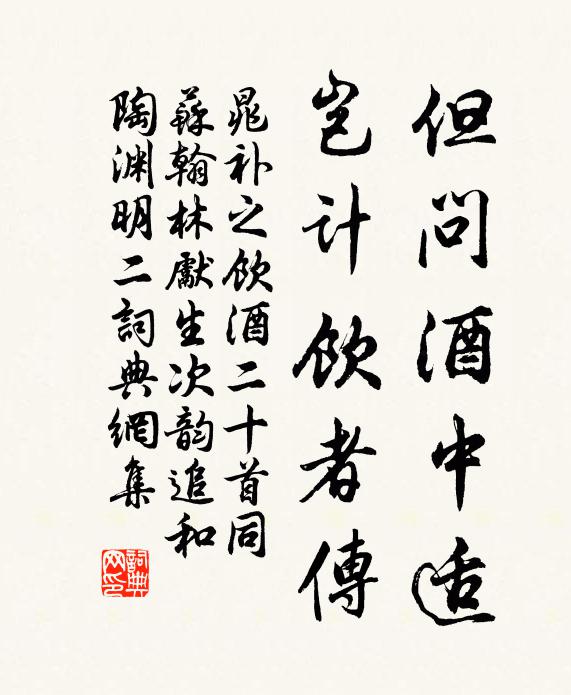 但问酒中适
岂计饮者傳
晁补之饮酒二十首同
蘇翰林獻生次韵追和
陶渊明二詞典網集
詞典
网印